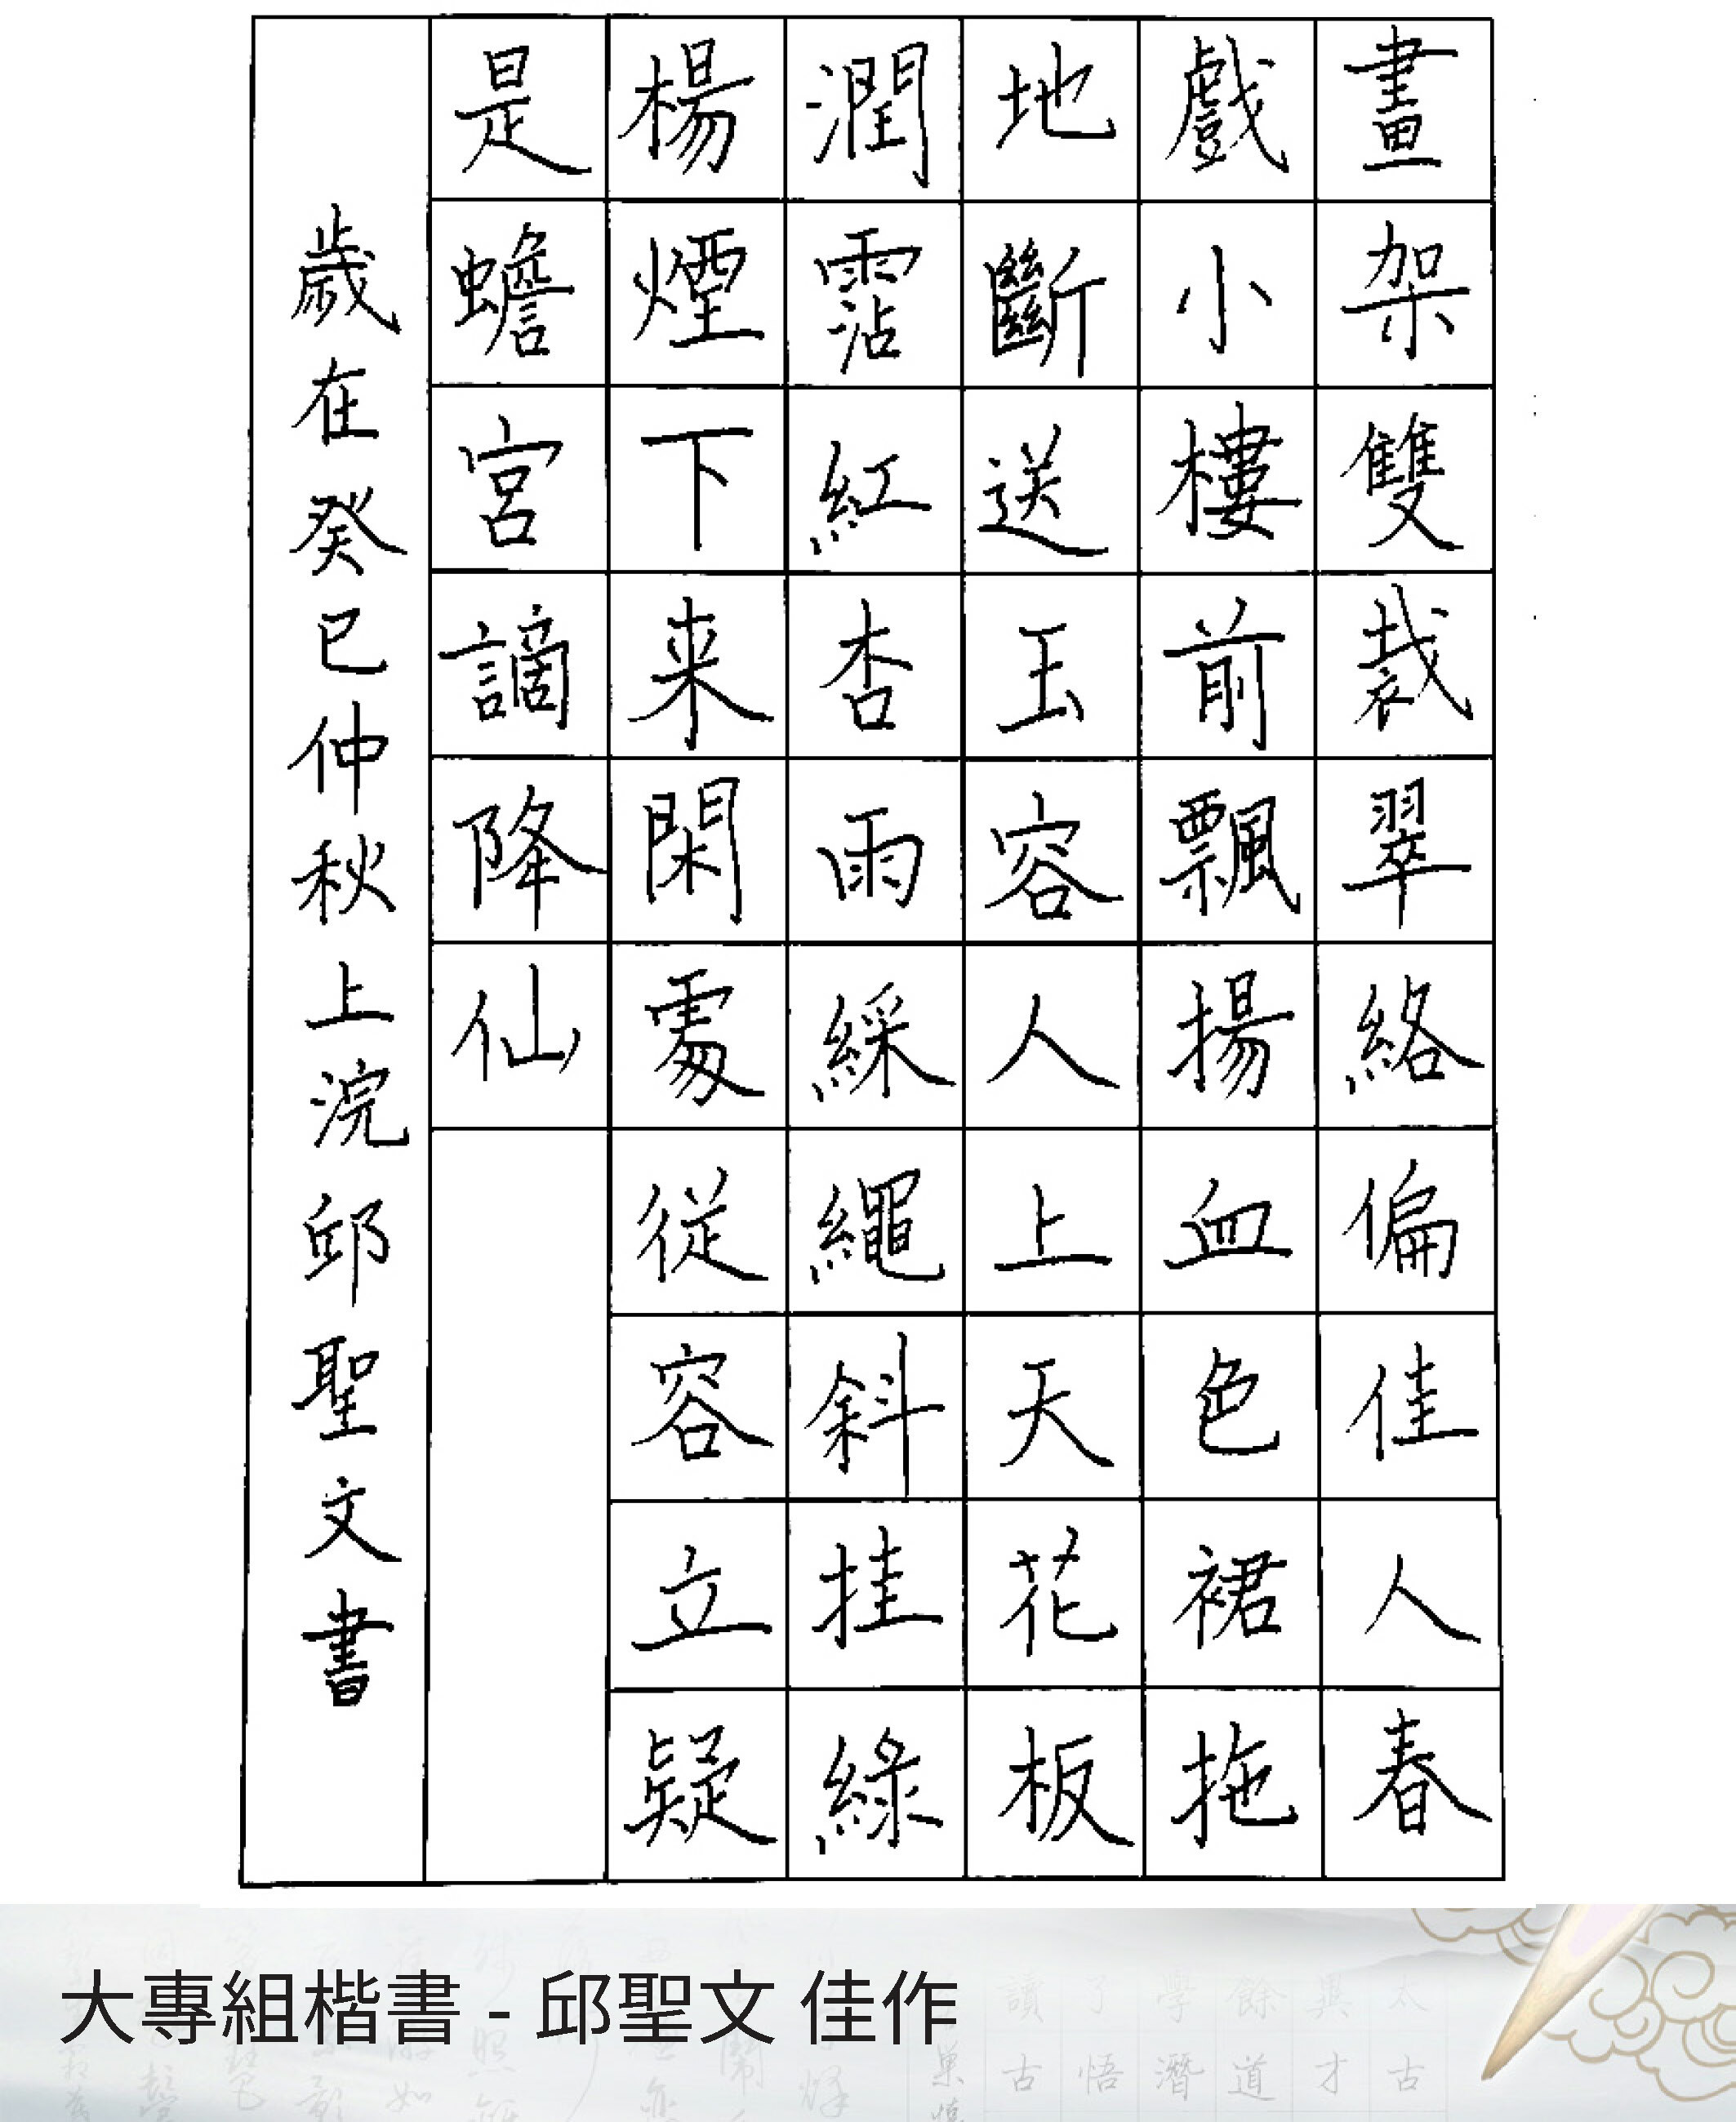 畫架雙裁翠絡偏佳人春
戲小樓前飄揚血色裙拖
地斷送玉容人上天花板
潤霑紅杏雨綵繩斜挂綠
楊煙下来閑處從容立疑
是蟾宮謫降仙
歲在癸巳仲秋上浣邱聖文書
大專組楷書 - 邱聖文 佳作